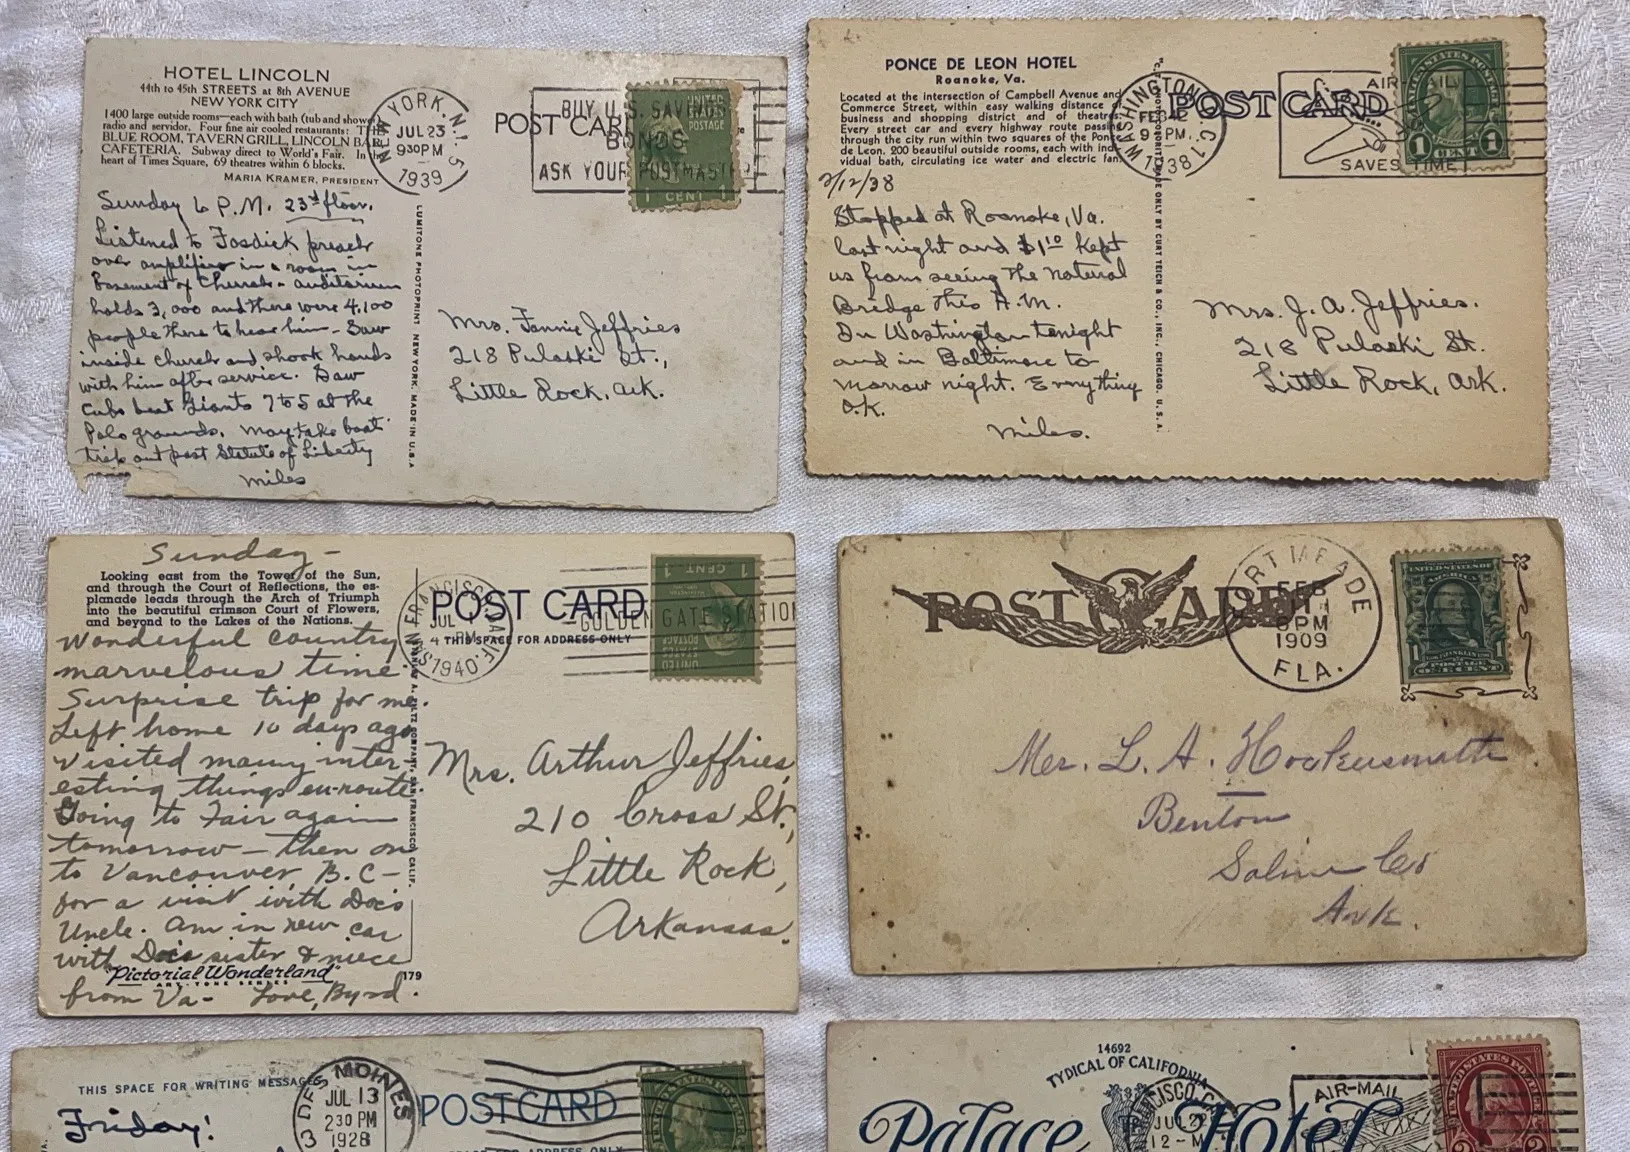 HOTEL LINCOLN
44th to 45th STREETS at 8th AVENUE
NEW YORK CITY
1400 large outside rooms—each with bath (tub and shower
radio and servidor. Four fine air cooled restaurants: TH
BLUE ROOM, TAVERN GRILL, LINCOLN BAR
CAFETERIA. Subway direct to World's Fair. In the
heart of Times Square, 69 theatres within 6 blocks.
MARIA KRAMER, PRESIDENT
YORK, N.
JUL 23
930 PM
1939
POST CARD
BUY U.S. SAVINGS
BONDS
ASK YOUR POSTMASTER
UNITED
POSTAGE
1 CENT 1
Sunday 6 P.M. 23rd floor.
Listened to Fosdick preach
over amplifier in a room in
basement of Church - auditorium
holds 3,000 and there were 4,100
people there to hear him - Saw
inside church and shook hands
with him after service. Saw
Cubs beat Giants 7 to 5 at the
Polo grounds. May take boat
trip out past Statue of Liberty
Miles
LUMITONE PHOTOPRINT NEW YORK. MADE IN U.S.A
Mrs. Fannie Jeffries
218 Pulaski St.,
Little Rock, Ark.
PONCE DE LEON HOTEL
Roanoke, Va.
Located at the intersection of Campbell Avenue and
Commerce Street, within easy walking distance of
business and shopping district and of theatres.
Every street car and every highway route passing
through the city run within two squares of the Ponce
de Leon. 200 beautiful outside rooms, each with indi-
vidual bath, circulating ice water and electric fan.
WASHINGTON, D.C.
FEB 12
9 PM
1938
POST CARD
AIR MAIL
SAVES TIME
1 CENT 1
2/12/38
Stopped at Roanoke, Va.
last night and $1.10 kept
us from seeing the Natural
Bridge this A.M.
In Washington tonight
and in Baltimore to
morrow night. Everything
O.K.
Miles.
MADE ONLY BY CURT TEICH & CO., INC., CHICAGO, U.S.A.
Mrs. J. A. Jeffries.
218 Pulaski St.
Little Rock, Ark.
Sunday -
Looking east from the Tower of the Sun,
and through the Court of Reflections, the es-
planade leads through the Arch of Triumph
into the beautiful crimson Court of Flowers,
and beyond to the Lakes of the Nations.
Wonderful country
marvelous time.
Surprise trip for me.
Left home 10 days ago
Visited many inter-
esting things en-route
Going to Fair again
tomorrow - then on
to Vancouver B.C -
for a visit with Doc's
Uncle. Am in new car
with Doc's sister & niece
from Va - Love, Byrd.
"Pictorial Wonderland"
ART-TONE SERIES
179
SAN FRANCISCO, CALIF.
JUL
4 PM
1940
POST CARD
THIS SPACE FOR ADDRESS ONLY
GOLDEN GATE STATION
1 CENT 1
UNITED
STATES
POSTAGE
SAN FRANCISCO, CALIF.
Mrs. Arthur Jeffries,
210 Cross St.,
Little Rock,
Arkansas.
POST CARD
FORT MEADE
FEB
6 PM
1909
FLA.
1 1
POSTAGE
L. A. Hockersmith
Benton
Saline Co
Ark.
THIS SPACE FOR WRITING MESSAGES
Friday!
DES MOINES
JUL 13
230 PM
1928
POST CARD
14692
TYPICAL OF CALIFORNIA
Palace Hotel
JUL
12 - M
AIR-MAIL
UNITED STATES POSTAGE